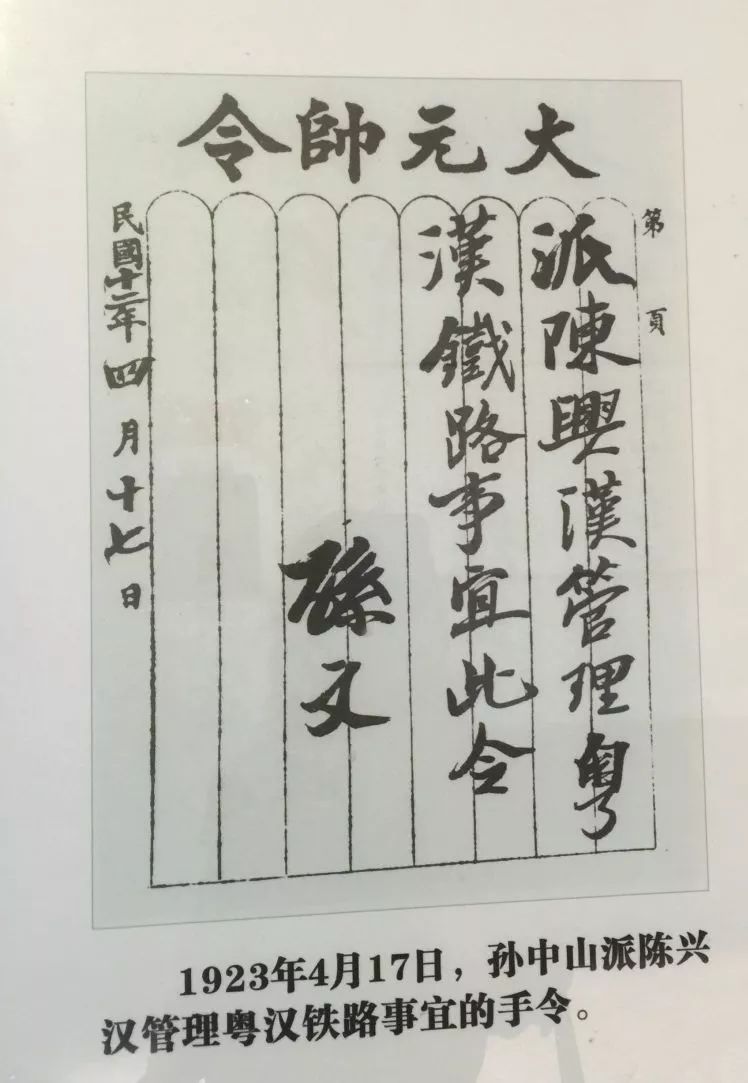 大元帥令
第 頁
派陳興漢管理粵
漢鐵路事宜此令
孫文
民國十二年四月十七日
1923年4月17日，孙中山派陈兴
汉管理粤汉铁路事宜的手令。